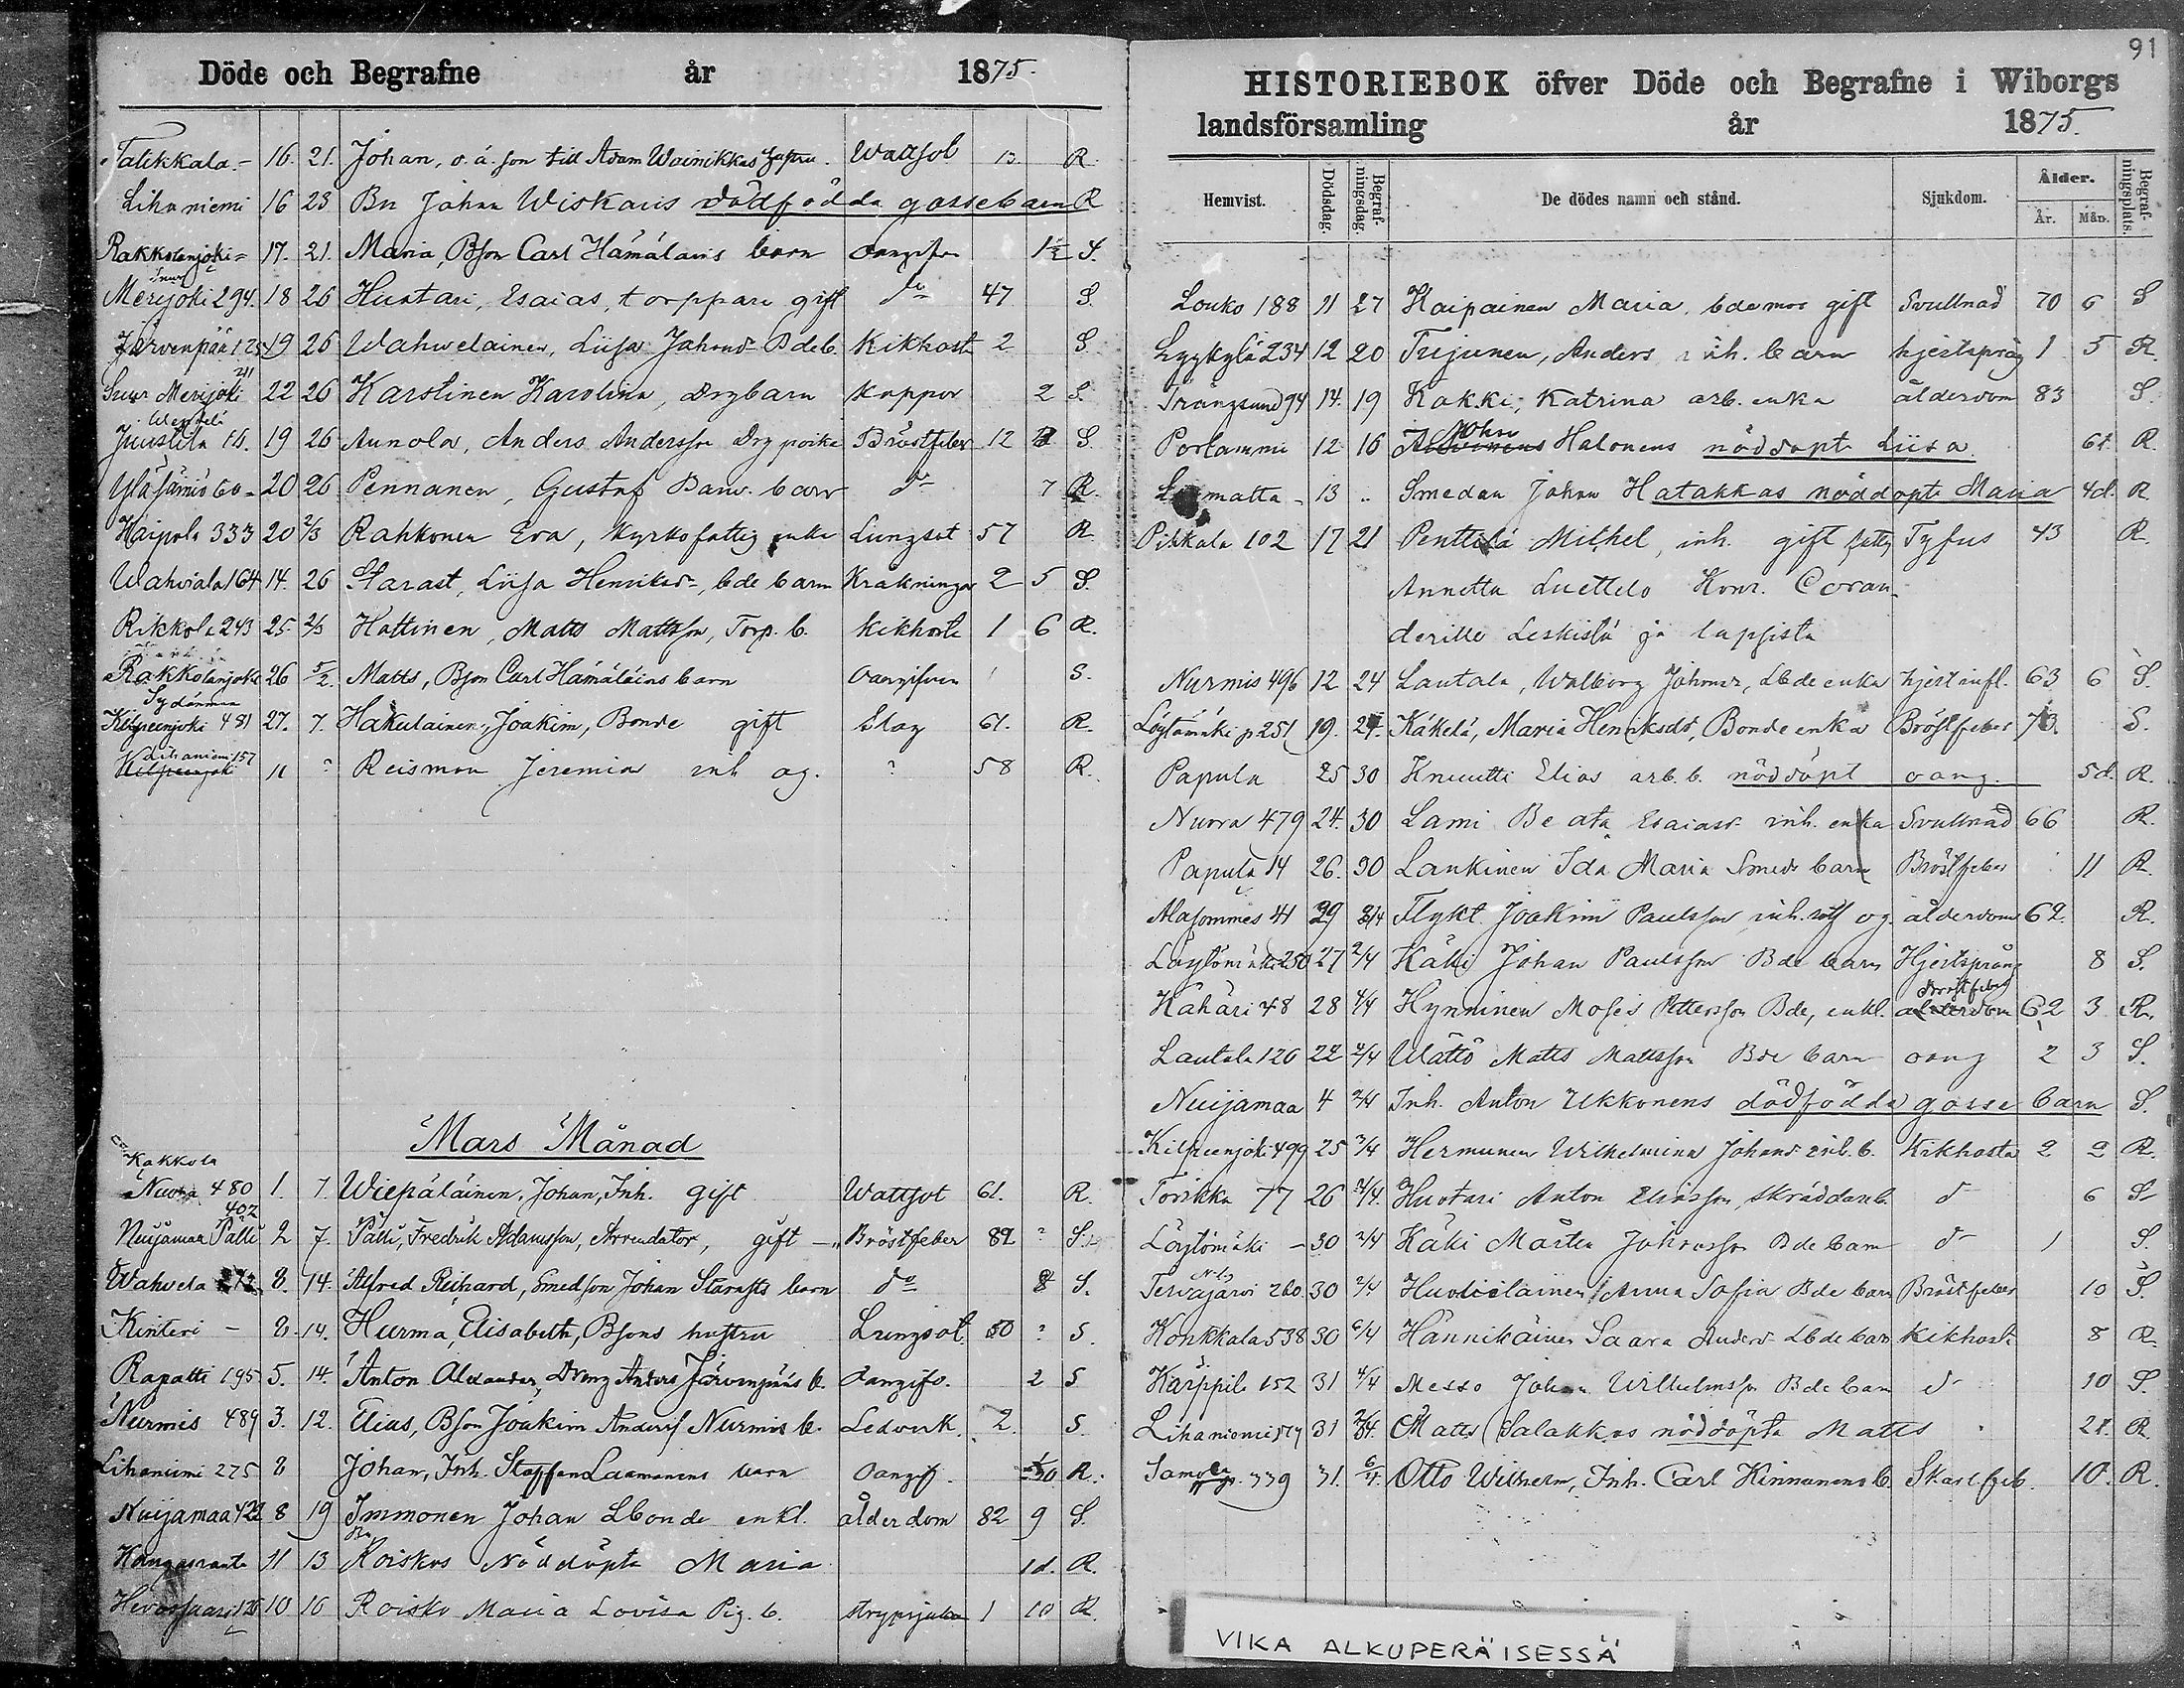 Döde och Begrafne år 1875.
Talikkala - 16. 21. Johan, o. ä. son till Adam Wainikkas hustru. Wattsot 13 R.
Lihaniemi 16 23 Bn Johan Wiskaris dödfödda gossebarn R
Rakkolanjoki - 17. 21. Maria, Bson Carl Hämäläins barn oangifven 1½ S.
Suur
Merijoki 294. 18 26 Huntari, Esaias, torppare gift do 47 S.
Järvenpää 125 19 26 Wahwelainen, Liisa Johansd. Bdeb. Kikhosta 2 S
Suur Merijoki 211 22 26 Karstinen Karolina, Drgbarn Koppor 2 S.
Juustila 16. 19 26 Aunola, Anders Andersson Drg poike Bröstfeber 12 S.
Yläsämis 60 - 20 26 Pennanen, Gustaf Banv. barn do 7 R.
Kaipola 333 20 2/3 Rahkonen Eva, kyrkofattig enka Lungsot 57 R.
Wahviala 164 14. 26 Starast, Liisa Henriksd., bde barn Kräkningar 2 5 S.
Rikkola 243 25 2/3 Hattinen, Matts Mattsson, Torp. b. Kikhosta 1 6 R.
Rakkolanjoki 26 5/2. Matts, Bson Carl Hämäläins barn oangifven S.
Sydänmaa
Kilpeenjoki 481 27. 7. Hakulainen, Joakim, Bonde gift Slag 61. R.
Lihaniemi 157
Kilpeenjoki 11 ? Reisman Jeremias inh. og. ? 58 R.
Mars Månad
Kakkola
Nuora 480 1. 7. Wiepäläinen, Johan, Inh. gift Wattsot 61. R.
402
Nuijamaa Pälli 2 7. Pälli, Fredrik Adamsson, Arrendator, gift - Bröstfeber 82 ? S.
Wahvela 272 8. 14. Alfred Richard, Smedson Johan Starasts barn do 8 S.
Kinteri - 8. 14. Hurma, Elisabeth, Bsons hustru Lungsot 50 ? S.
Rapatti 195 5. 14. Anton Alexander, Dreng Anders Järvenpääs b. Oangifv. 2 S
Nurmis 489 3. 12. Elias, Bson Joakim Anderss. Nurmis b. Ledverk. 2. S.
Lihaniemi 275 8 Johan, Inh. Staffan Laamanens barn Oangif. R.
Nuijamaa 422 8 19 Immonen Johan Lbonde enkl. ålderdom 82 9 S.
Kangasranta 11 13 Roiskos Nöddöpta Maria 1d. R.
Hevossaari 126 10 16 Roisko Maria Lovisa Pig. b. strypsjuka 1 10 R.
91
HISTORIEBOK öfver Döde och Begrafne i Wiborgs
landsförsamling år 1875.
Hemvist. Dödsdag. Begrafningsdag. De dödes namn och stånd. Sjukdom. Ålder. År. Mån. Begrafningsplats.
Louko 188 11 27 Kaipainen Maria, bdemor gift Svullnad 70 6 S
Lyykylä 234 12 20 Tujunen, Anders inh. barn hjertspräng 1 5 R.
Trångsund 94 14. 19 Kokki, Katrina arb. enka ålderdom 83 S.
Portammi 12 16 John Halonens nöddöpt Liisa 6t. R.
13 .. Smeden Johan Hatakkas nöddöpta Maria 4d. R
Pikkala 102 17 21 Penttilä Mickel, inh. gift fattig Tyfus 43 R.
Annettu Luettelo Konr. Coran-
derille Leskistä ja lapsista
Nurmis 496 12 24 Lautala, Walborg Johansd., Lbde enka hjert infl. 63 6 S.
Löytömäki p 251 19. 27. Käkelä, Maria Henriksdr, Bonde enka Bröstfeber 73. S.
Papula 25 30 Knuutti Elias arb. b. nöddöpt oang. 5d. R.
Nuora 479 24. 30 Lami Beata Esaiasd. inh. enka Svullnad 66 R.
Papula 14 26. 30 Lankinen Ida Maria Smeds barn Bröstfeber 11 R.
Alasommes 41 29 2/4 Flykt Joakim Paulsson inh. og. ålderdom 62. R.
Löytömäki 250 27 2/4 Käki Johan Paulsson Bde barn Hjertspräng 8 S.
Kähäri 48 28 4/4 Hynninen Moses Pettersson Bde, enkl. ålderdom Bröstfeber 62 3 R.
Lautala 126 22 2/4 Wättö Matts Mattsson Bde barn oang 2 3 S.
Nuijamaa 4 2/4 Inh. Anton Ukkonens dödfödda gosse barn S.
Kilpeenjoki 499 25 3/4 Hermunen Wilhelmina Johansd. inh. b. Kikhosta 2 2 R.
Torikka 77 26 2/4. Huotari Anton Eliasson, skräddareb. do 6 S
Löytömäki - 30 2/4 Käki Mårten Johansson Bde barn do 1 S.
Tervajärvi 260 30 2/4 Huvtilainen Anna Sofia Bde barn Bröstfeber 10 S.
Konkkala 538 30 6/4 Hännikäinen Saara Andersd. Lbde barn Kikhosta 8 R.
Kärppilä 152 31 4/4 Messo Johan Wilhelmsson Bde barn do 10 S.
Lihaniemi 31 2/4. Matts Salakkas nöddöpta Matts 2t. R.
Samola 339 31. 6/4. Otto Wilhelm, Inh. Carl Kinnunens b. Skarl.feb. 10. R.
VIKA ALKUPERÄISESSÄ